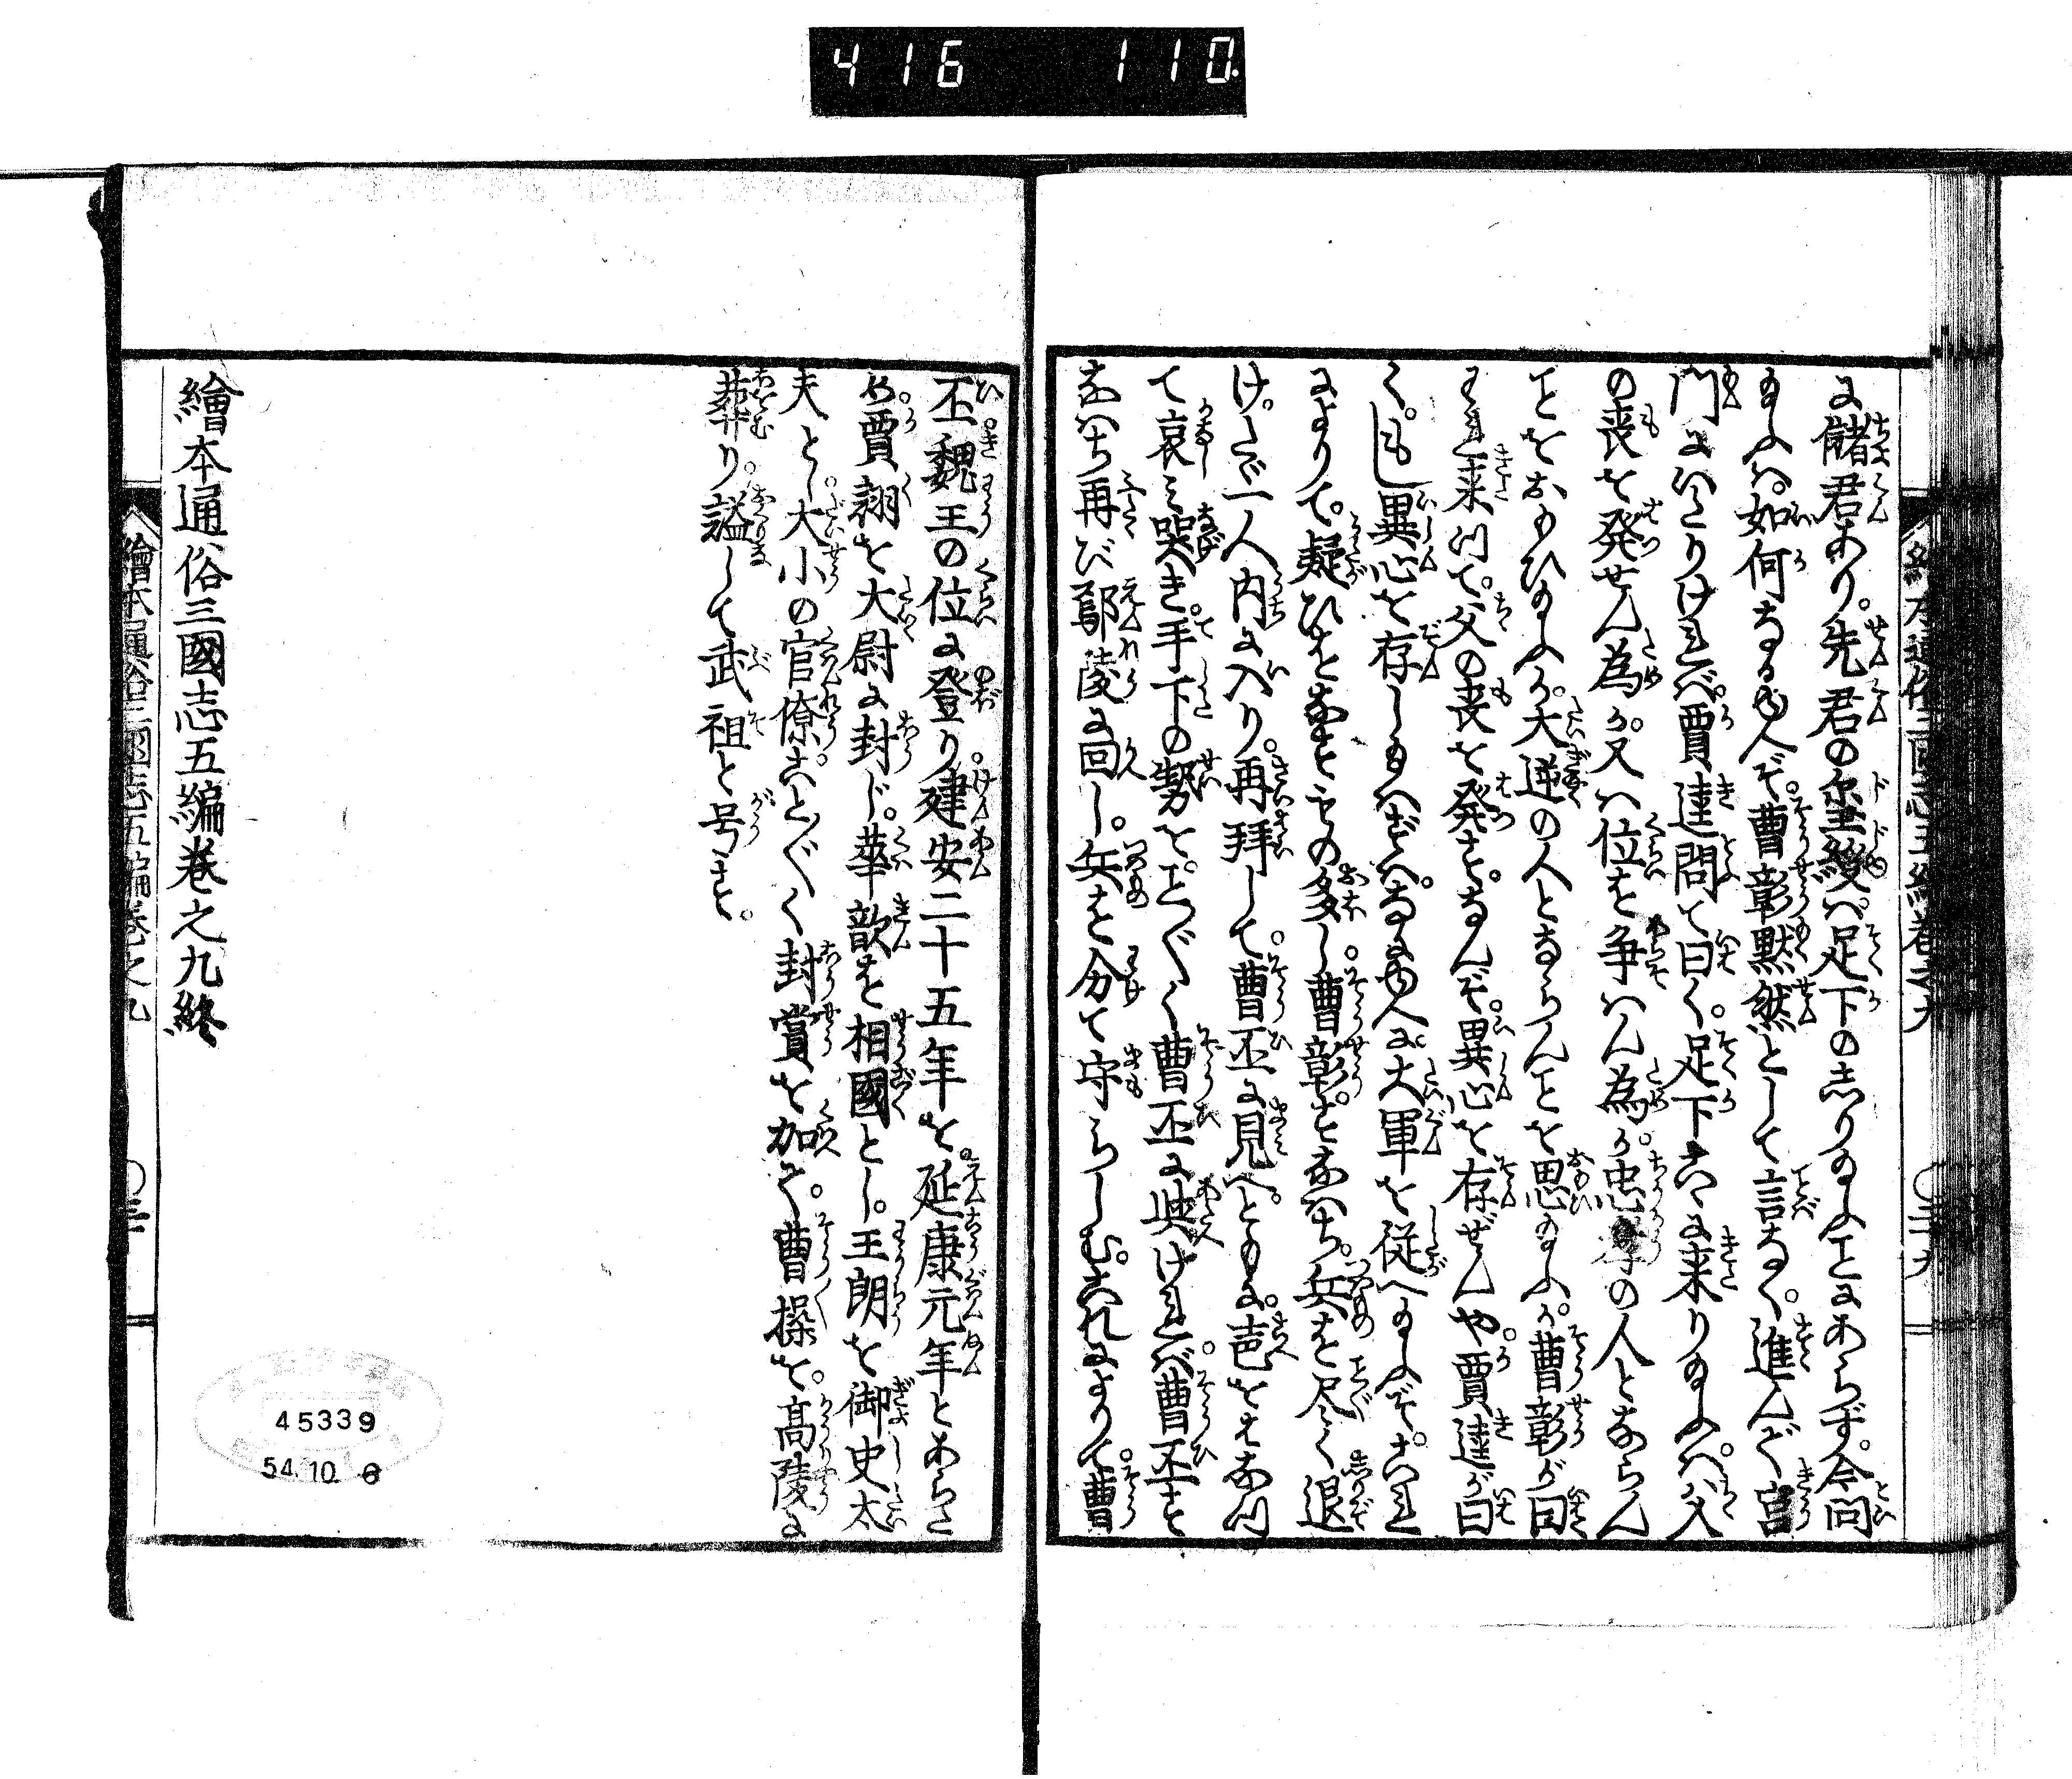 416 110
に儲君あり。先君の璽綬は。足下の志り給ふことにあらず。今問
給ふは。如何なる由んぞ。曹彰黙然として言なく。進んで宮
門にいたりければ。賈逵問て曰く。足下こゝに来り給ふは。父
の喪を発せん為か。又ハ位を争ハん為か。忠孝の人とならん
ことをおもひ給ふか。大逆の人とならんことを思給ふか。曹彰が曰
われ来つて。父の喪を発す。なんぞ。異心を存ぜんや。賈逵が曰
く。もし異心を存し給ハずハ。なに由へに大軍を従へ給ふぞ。これ
によりて。疑ひをなすもの多し。曹彰。すなハち。兵を尽く退
け。たゞ一人内に入り。再拝して。曹丕に見へ。ともに。声をはなつ
て哀み哭き。手下の勢を。ことごとく曹丕に與けれバ。曹丕す
なハち再び鄢陵に回し。兵を分て守らしむ。これによりて。曹
丕魏王の位に登り。建安二十五年を。延康元年とあらた
め。賈詡を大尉に封じ。華歆を相國とし。王朗を御史太
夫とし。大小の官僚ことごとく封賞を加へて。曹操を。高陵に
葬り。謚して武祖と号す。
繪本通俗三國志五編巻之九終
繪本通俗三國志五編巻之九 〇三十
45339
54.10.6